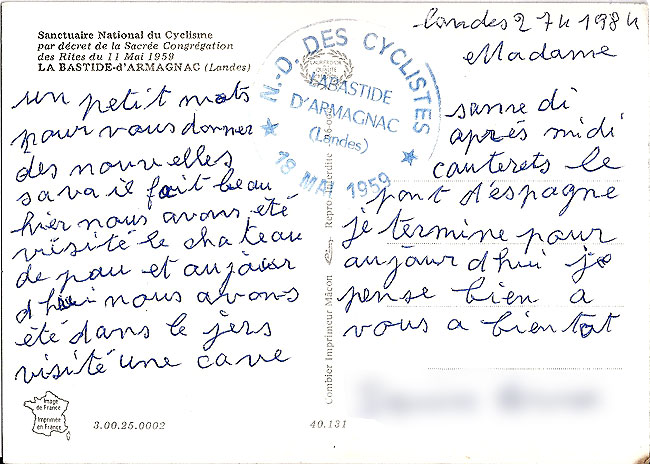 Sanctuaire National du Cyclisme
par décret de la Sacrée Congrégation
des Rites du 11 Mai 1959
LA BASTIDE-d'ARMAGNAC (Landes)
N.-D. DES CYCLISTES
LABASTIDE
D'ARMAGNAC
(Landes)
18 MAI 1959
un petit mots
pour vous donner
des nouvelles
sava il fait beau
hier nous avons été
visité le chateau
de pau et aujour
d hui nous avons
été dans le jers
visité une cave
landes 27 4 1984
Madame
same di
après midi
cauterets le
pont d'espagne
je termine pour
aujourd hui je
pense bien a
vous a bientot
Combier Imprimeur Mâcon
Image
de France
Imprimée
en France
3.00.25.0002
40.131